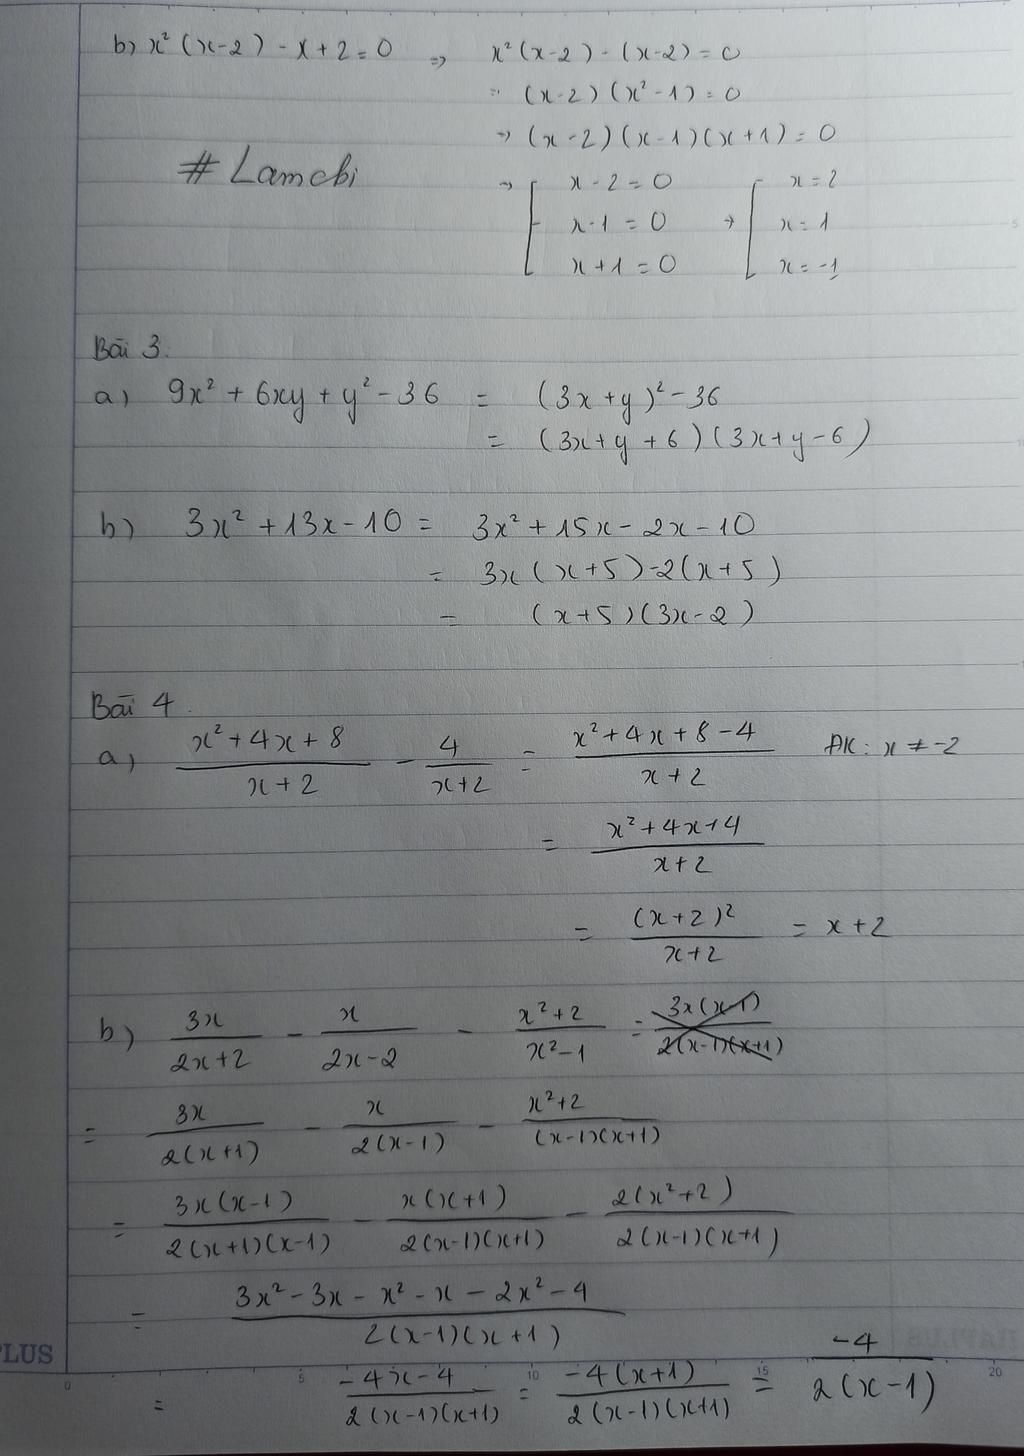 b) x² (x-2) - x + 2 = 0 => x² (x-2) - (x-2) = 0
=> (x-2) (x² - 1) = 0
=> (x-2) (x-1) (x+1) = 0
# Lamchi
=> [ x - 2 = 0 => [ x = 2
x - 1 = 0 x = 1
x + 1 = 0 x = -1
Bài 3.
a) 9x² + 6xy + y² - 36 = (3x + y)² - 36
= (3x + y + 6) (3x + y - 6)
b) 3x² + 13x - 10 = 3x² + 15x - 2x - 10
= 3x (x+5) - 2(x+5)
= (x+5) (3x-2)
Bài 4.
a) (x² + 4x + 8)/(x + 2) - 4/(x+2) = (x² + 4x + 8 - 4)/(x + 2) ĐK: x ≠ -2
= (x² + 4x + 4)/(x+2)
= (x+2)²/(x+2) = x + 2
b) 3x/(2x+2) - x/(2x-2) - (x²+2)/(x²-1) = 3x(x-1)/2(x-1)(x+1)
= 3x/2(x+1) - x/2(x-1) - (x²+2)/(x-1)(x+1)
= 3x(x-1)/2(x+1)(x-1) - x(x+1)/2(x-1)(x+1) - 2(x²+2)/2(x-1)(x+1)
= (3x² - 3x - x² - x - 2x² - 4)/2(x-1)(x+1)
= (-4x-4)/2(x-1)(x+1) = -4(x+1)/2(x-1)(x+1) = -4/2(x-1)
PLUS
0 5 10 15 20